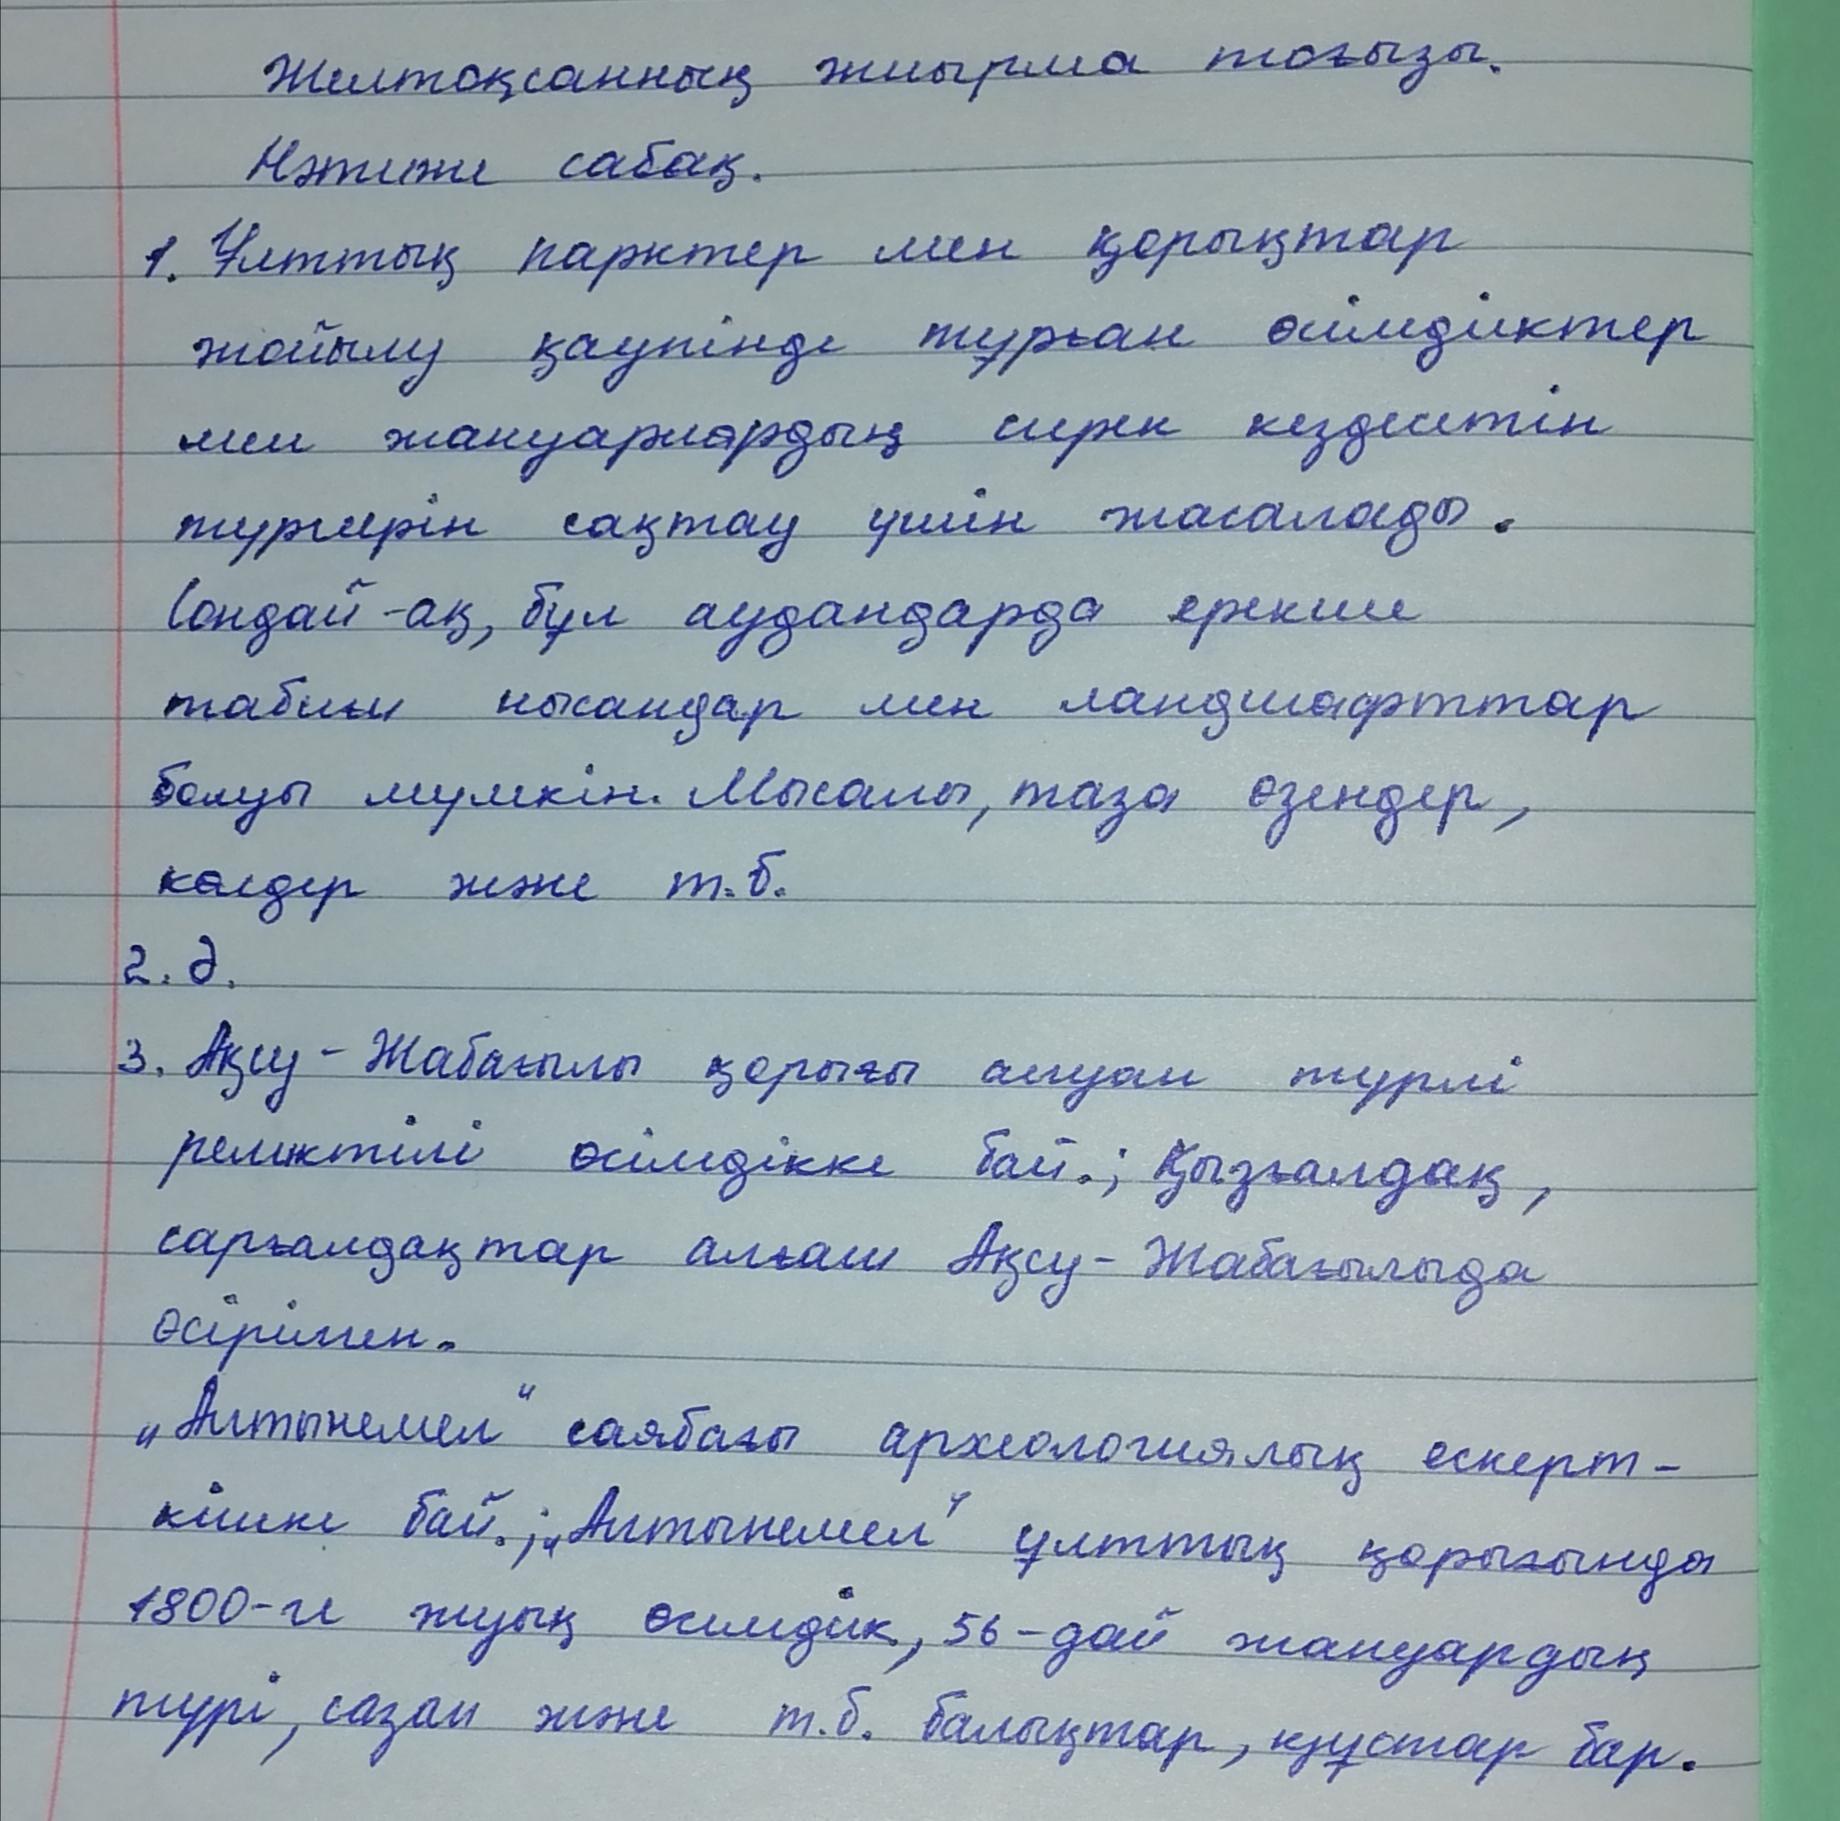 Желтоқсанның жиырма тоғызы.
Нәтиже сабақ.
1. Ұлттық парктер мен қорықтар
жойылу қаупінде тұрған өсімдіктер
мен жануарлардың сирек кездесетін
түрлерін сақтау үшін жасалады.
Сондай-ақ, бұл аудандарда ерекше
табиғи нысандар мен ландшафттар
болуы мүмкін. Мысалы, таза өзендер,
көлдер және т.б.
2. д.
3. Ақсу-Жабағылы қорығы алуан түрлі
реликтілі өсімдікке бай.; Қызғалдақ,
сарғалдақтар алғаш Ақсу-Жабағылыда
өсірілген.
„Алтынемел" саябағы археологиялық ескерт-
кішке бай.; „Алтынемел" ұлттық қорығында
1800-ге жуық өсімдік, 56-дай жануардың
түрі, сазан және т.б. балықтар, құстар бар.